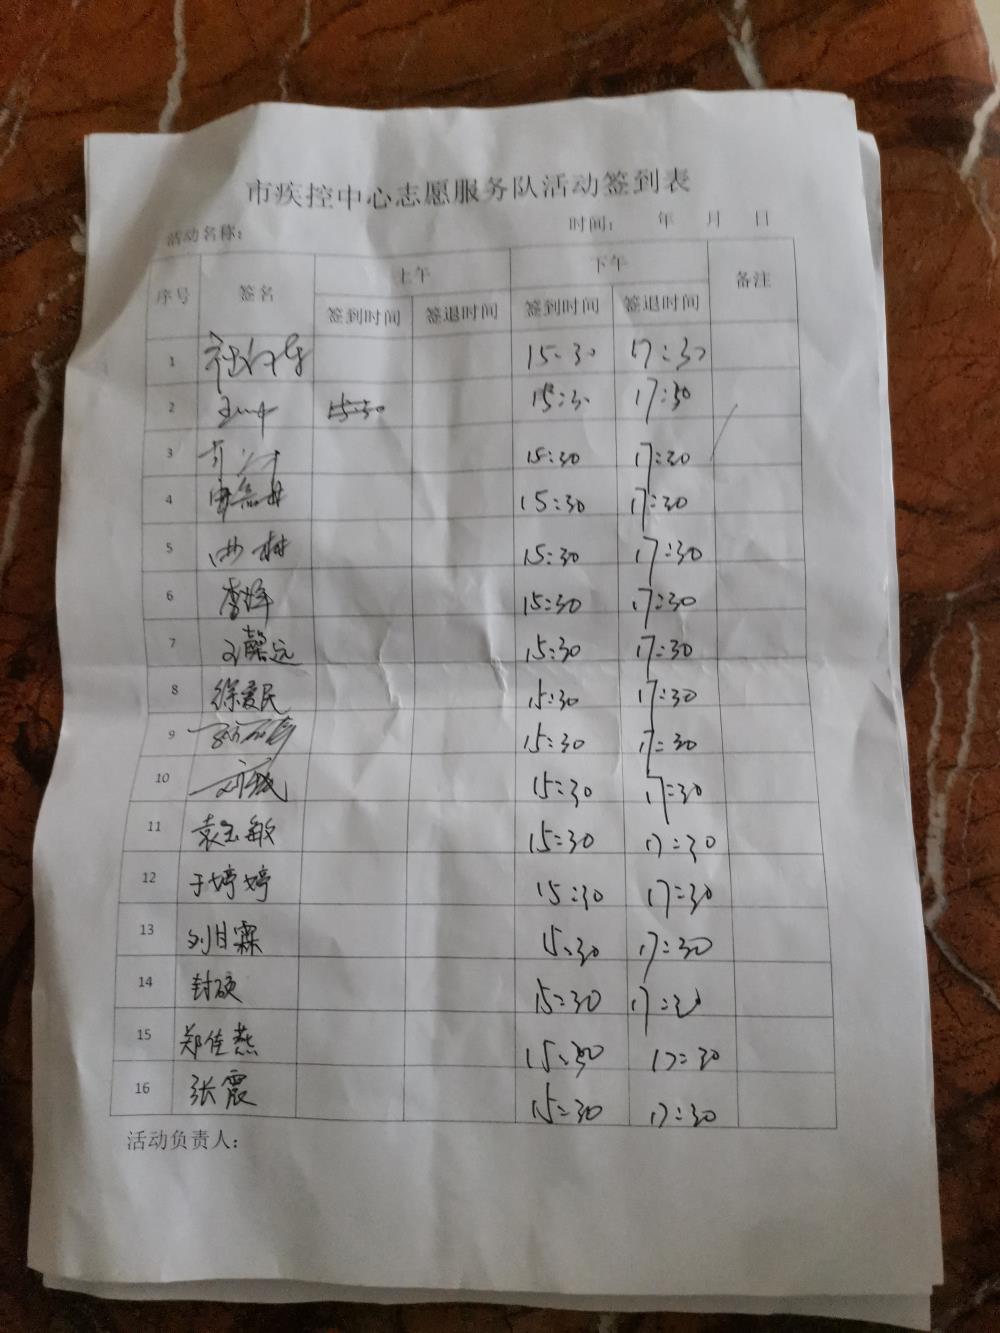 市疾控中心志愿服务队活动签到表
活动名称： 时间： 年 月 日
序号 签名 上午 下午 备注
签到时间 签退时间 签到时间 签退时间
1 15:30 17:30
2 15:30 15:30 17:30
3 15:30 17:30
4 15:30 17:30
5 15:30 17:30
6 李峰 15:30 17:30
7 馨远 15:30 17:30
8 徐爱民 15:30 17:30
9 15:30 17:30
10 15:30 17:30
11 袁玉敏 15:30 17:30
12 于婷婷 15:30 17:30
13 刘甘霖 15:30 17:30
14 封硕 15:30 17:30
15 郑佳燕 15:30 17:30
16 张震 15:30 17:30
活动负责人：